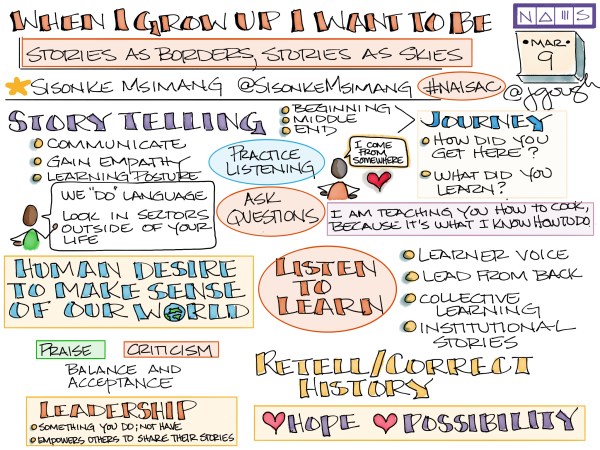 WHEN I GROW UP I WANT TO BE
NAIS
STORIES AS BORDERS, STORIES AS SKIES
MAR.
9
SISONKE MSIMANG @SISONKEMSIMANG #NAISAC @jgough
STORY TELLING
COMMUNICATE
GAIN EMPATHY
LEARNING POSTURE
BEGINNING
MIDDLE
END
JOURNEY
HOW DID YOU
GET HERE?
WHAT DID YOU
LEARN?
PRACTICE
LISTENING
I COME
FROM
SOMEWHERE
WE "DO" LANGUAGE
LOOK IN SECTORS
OUTSIDE OF YOUR
LIFE
ASK
QUESTIONS
I AM TEACHING YOU HOW TO COOK,
BECAUSE IT'S WHAT I KNOW HOW TO DO
HUMAN DESIRE
TO MAKE SENSE
OF OUR WORLD
LISTEN
TO
LEARN
LEARNER VOICE
LEAD FROM BACK
COLLECTIVE
LEARNING
INSTITUTIONAL
STORIES
PRAISE CRITICISM
BALANCE AND
ACCEPTANCE
RETELL/CORRECT
HISTORY
LEADERSHIP
SOMETHING YOU DO; NOT HAVE
EMPOWERS OTHERS TO SHARE THEIR STORIES
HOPE POSSIBILITY